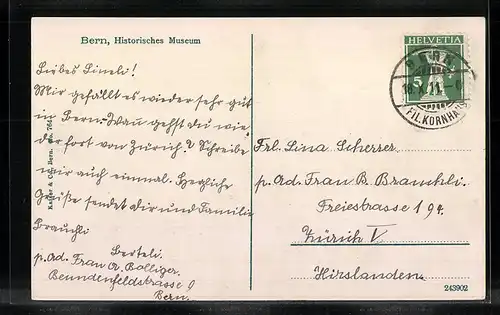 Bern, Historisches Museum
Liebes Lineli!
Mir gefällt es wieder sehr gut
in Bern. Wan gehst du wie-
der fort von Zürich? Schreibe
mir auch einmal. Herzliche
Grüße sendet dir und Familie
Brauchli
Berteli.
p. Ad. Frau A. Bolliger.
Beundenfeldstrasse 9
Bern.
Kaiser & Co., Bern. No. 764
HELVETIA
5
BERN
18.X.11.
FIL.KORNHAUS
Frl. Lina Scherrer.
p. Ad. Frau B. Brauchli.
Freiestrasse 194.
Zürich V
Hirslanden.
243902